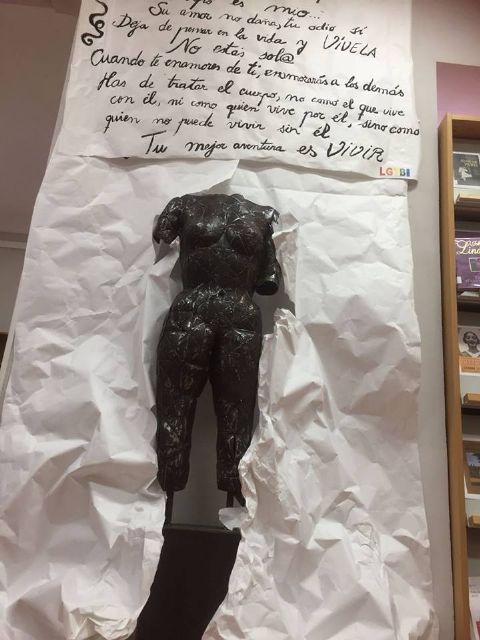 es mio...
Su amor no daña, tu odio sí
Deja de pensar en la vida y VIVELA
No estás sol@
Cuando te enamores de ti, enamorarás a los demás
Has de tratar el cuerpo, no como el que vive
con él, ni como quien vive por él, sino como
quien no puede vivir sin él
Tu mejor aventura es VIVIR
LGTBI